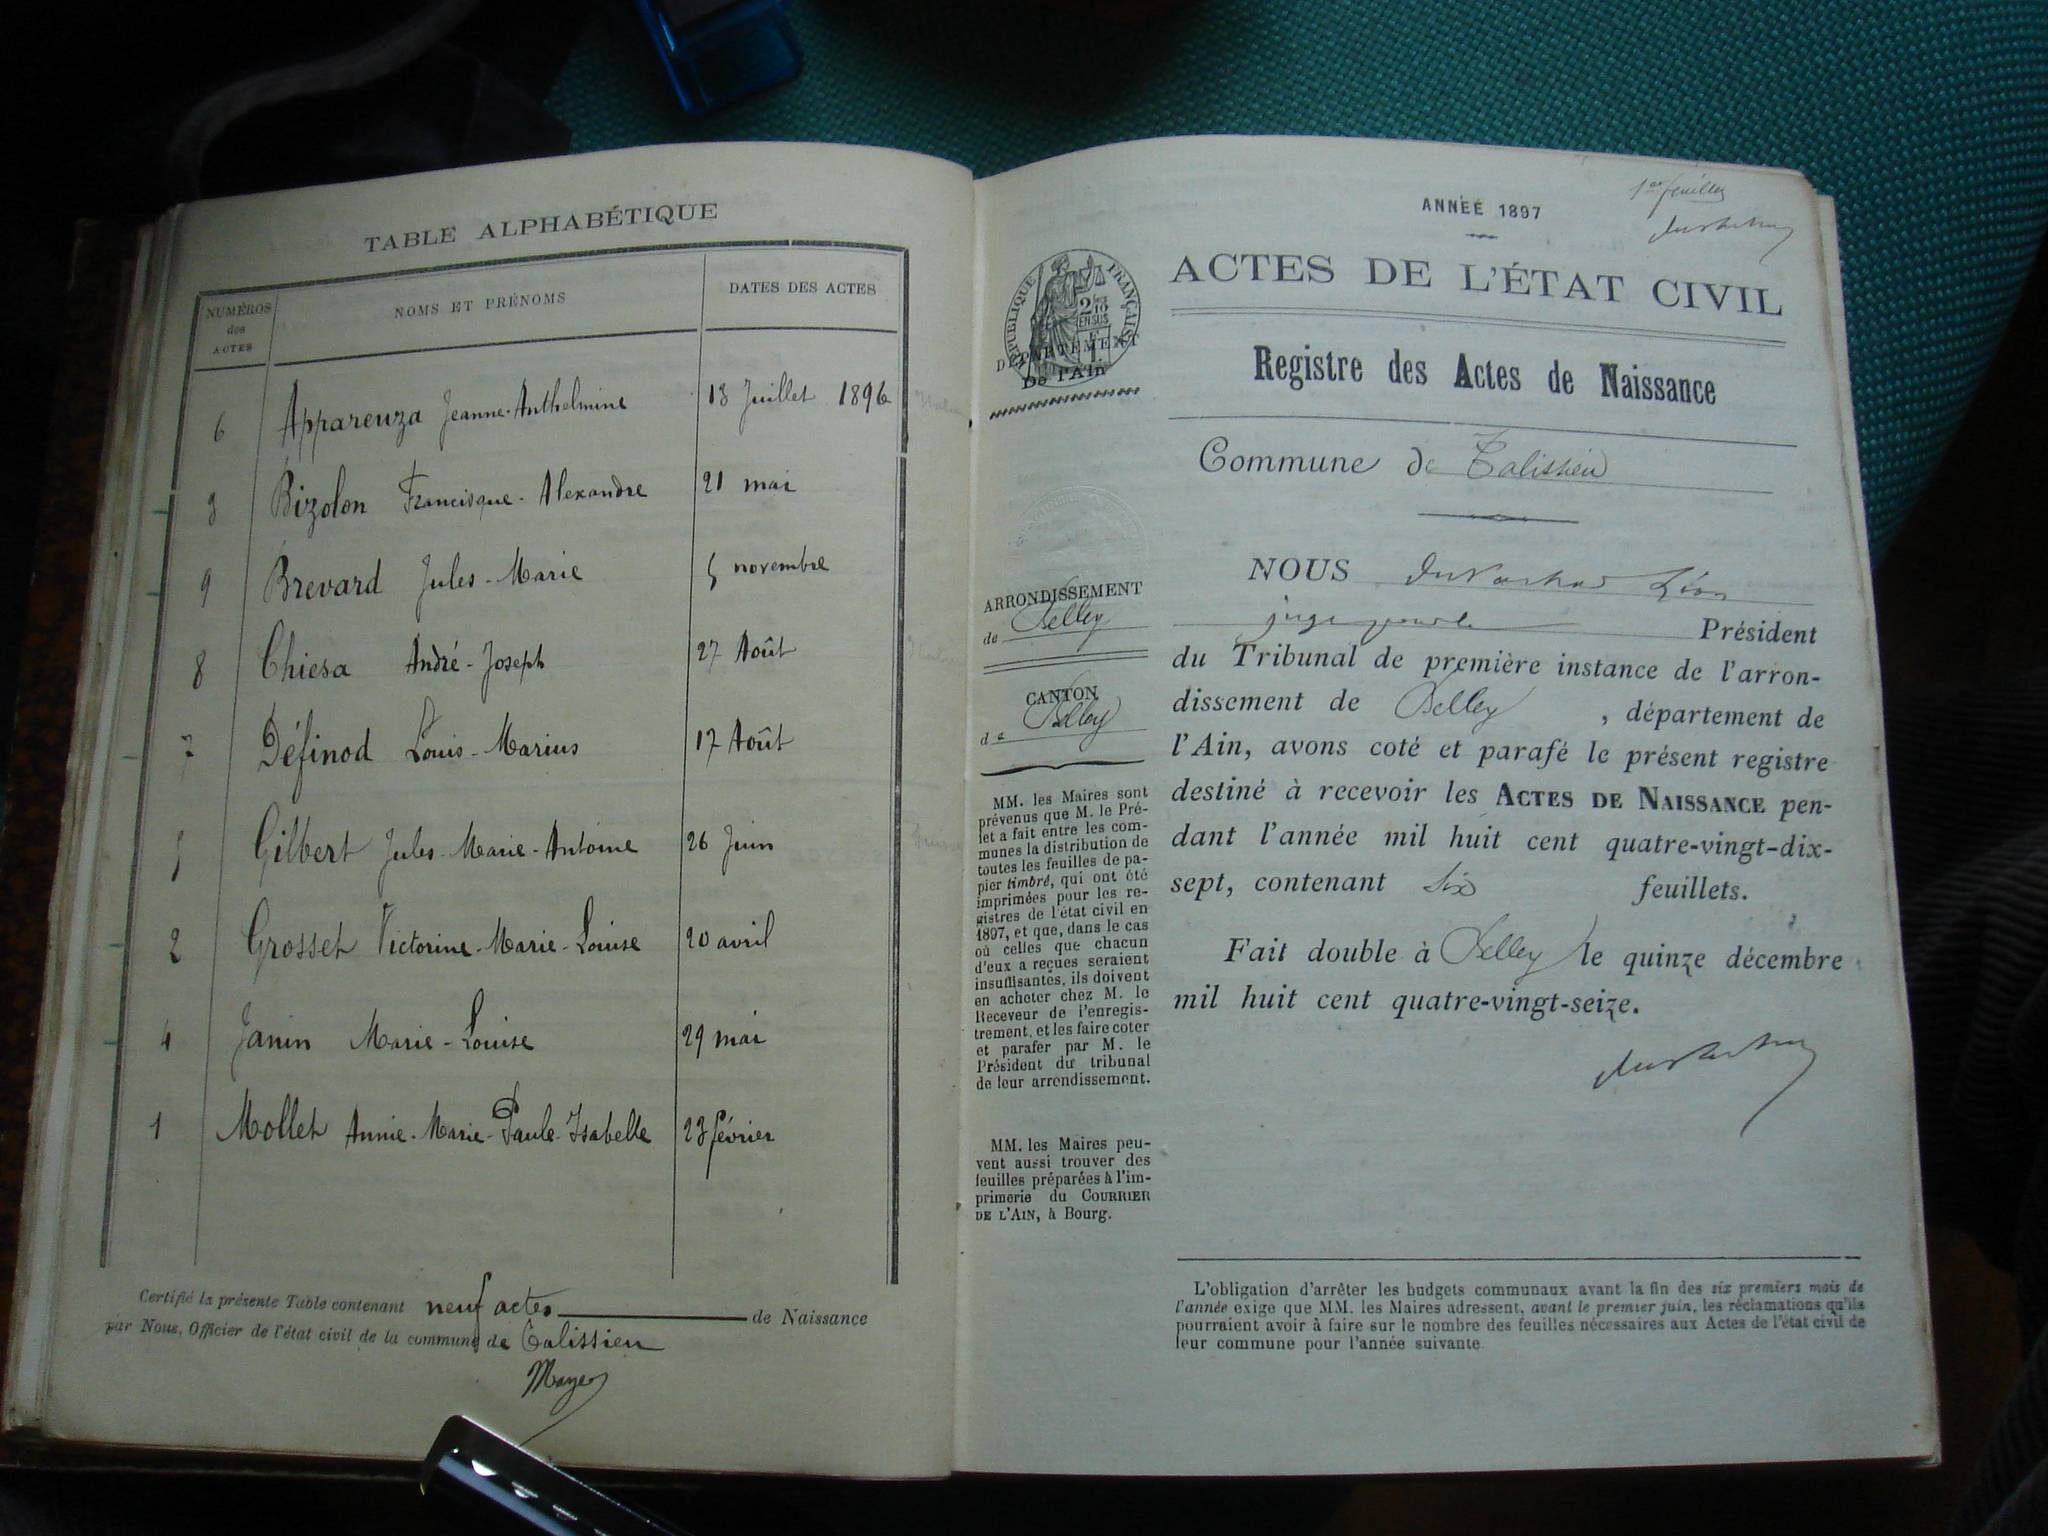 TABLE ALPHABÉTIQUE
NUMÉROS des ACTES
NOMS ET PRÉNOMS
DATES DES ACTES
6 Apparenza Jeanne-Anthelmine 13 Juillet 1896
3 Bizolon Francisque-Alexandre 21 mai
9 Brevard Jules-Marie 5 novembre
8 Chiesa André-Joseph 27 Août
7 Définod Louis-Marius 17 Août
5 Gilbert Jules-Marie-Antoine 26 Juin
2 Grosset Victorine-Marie-Louise 20 avril
4 Janin Marie-Louise 29 mai
1 Mollet Annie-Marie-Paule-Isabelle 23 février
Certifié la présente Table contenant neuf actes de Naissance
par Nous, Officier de l'état civil de la commune de Talissieu
ANNÉE 1897
1er feuillet
RÉPUBLIQUE FRANÇAISE
2/10 EN SUS
DÉPARTEMENT
De l'Ain
ACTES DE L'ÉTAT CIVIL
Registre des Actes de Naissance
Commune de Talissieu
ARRONDISSEMENT
de Belley
CANTON
de Belley
MM. les Maires sont
prévenus que M. le Pré-
fet a fait entre les com-
munes la distribution de
toutes les feuilles de pa-
pier timbré, qui ont été
imprimées pour les re-
gistres de l'état civil en
1897, et que, dans le cas
où celles que chacun
d'eux a reçues seraient
insuffisantes, ils doivent
en acheter chez M. le
Receveur de l'enregis-
trement, et les faire coter
et parafer par M. le
Président du tribunal
de leur arrondissement.
MM. les Maires peu-
vent aussi trouver des
feuilles préparées à l'im-
primerie du COURRIER
DE L'AIN, à Bourg.
NOUS Léon
juge Président
du Tribunal de première instance de l'arron-
dissement de Belley, département de
l'Ain, avons coté et parafé le présent registre
destiné à recevoir les ACTES DE NAISSANCE pen-
dant l'année mil huit cent quatre-vingt-dix-
sept, contenant six feuillets.
Fait double à Belley le quinze décembre
mil huit cent quatre-vingt-seize.
L'obligation d'arrêter les budgets communaux avant la fin des six premiers mois de
l'année exige que MM. les Maires adressent, avant le premier juin, les réclamations qu'ils
pourraient avoir à faire sur le nombre des feuilles nécessaires aux Actes de l'état civil de
leur commune pour l'année suivante